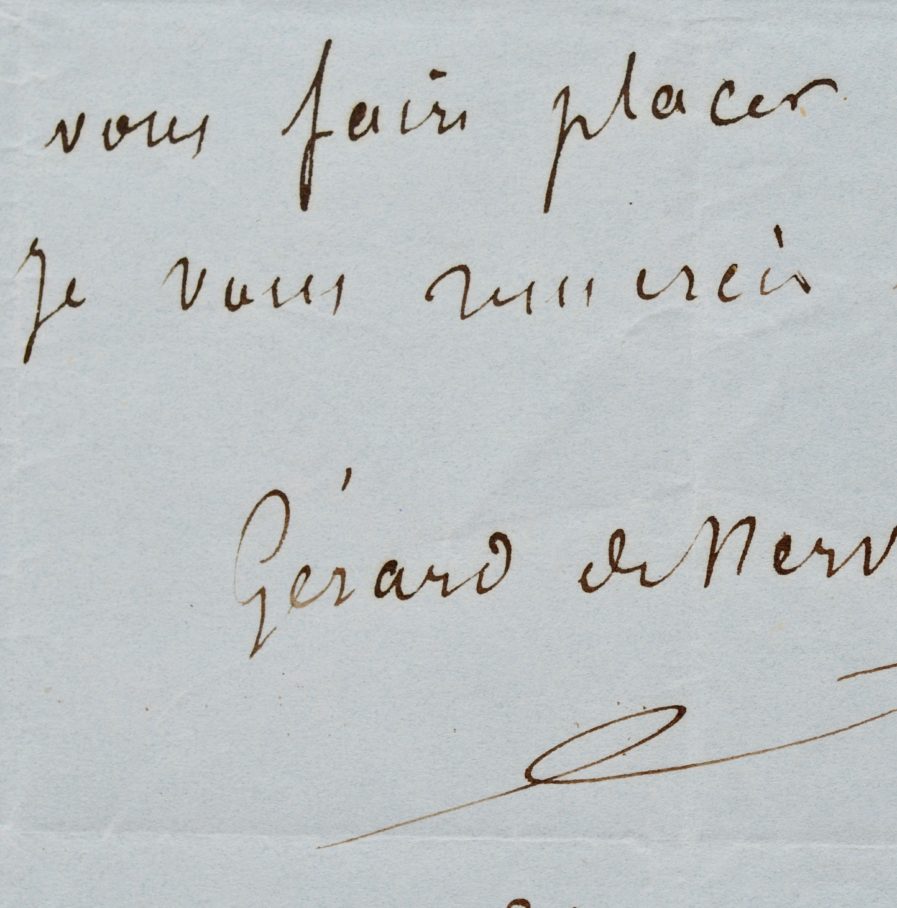 vous faire placer
Je vous remercie
Gérard de Nerv